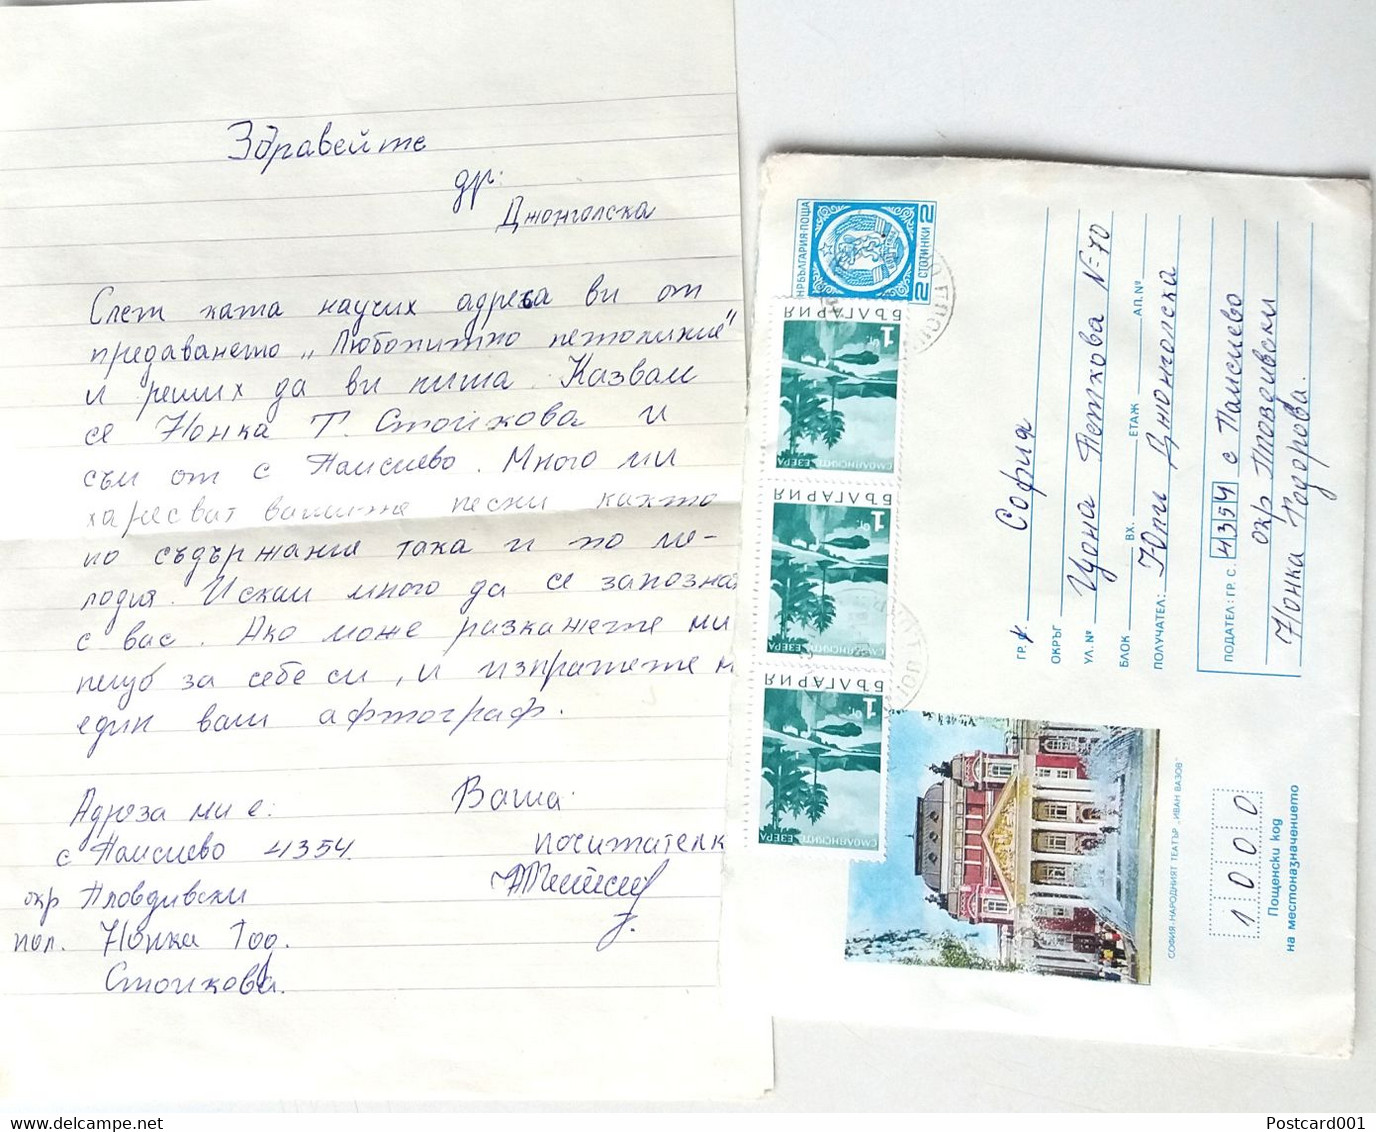 Здравейте
др:
Джонголска
Слет ката научих адреса ви от
предаването „Любопитно петолиние"
и реших да ви пиша. Казвам
се Нонка Т. Стоикова и
съм от с Паисиево. Много ми
харесват вашите песни както
по съдържание така и по ме-
лодия. Искам много да се запозная
с вас. Ако може разкажете ми
за себе си, и изпратете м
един ваш афтограф.
Адреза ми е:
с Паисиево 4354
окр Пловдивски
пол. Нонка Тод.
Стоикова.
Ваша:
почитателк
НР БЪЛГАРИЯ·ПОЩА
2 СТОТИНКИ 2
БЪЛГАРИЯ
1 ст.
СМОЛЯНСКИТЕ ЕЗЕРА
БЪЛГАРИЯ
1 ст.
СМОЛЯНСКИТЕ ЕЗЕРА
БЪЛГАРИЯ
1 ст.
СМОЛЯНСКИТЕ ЕЗЕРА
ГР. София
ОКРЪГ
УЛ. № Цона Петкова №-70
БЛОК ВХ. ЕТАЖ АП. №
ПОЛУЧАТЕЛ: Юли Джонголска
ПОДАТЕЛ: ГР. С. 4354 с Паисиево
окр Пловдивски
Нонка Тодорова.
СОФИЯ·НАРОДНИЯТ ТЕАТЪР „ИВАН ВАЗОВ"
1000
Пощенски код
на местоназначението
Postcard001
delcampe.net